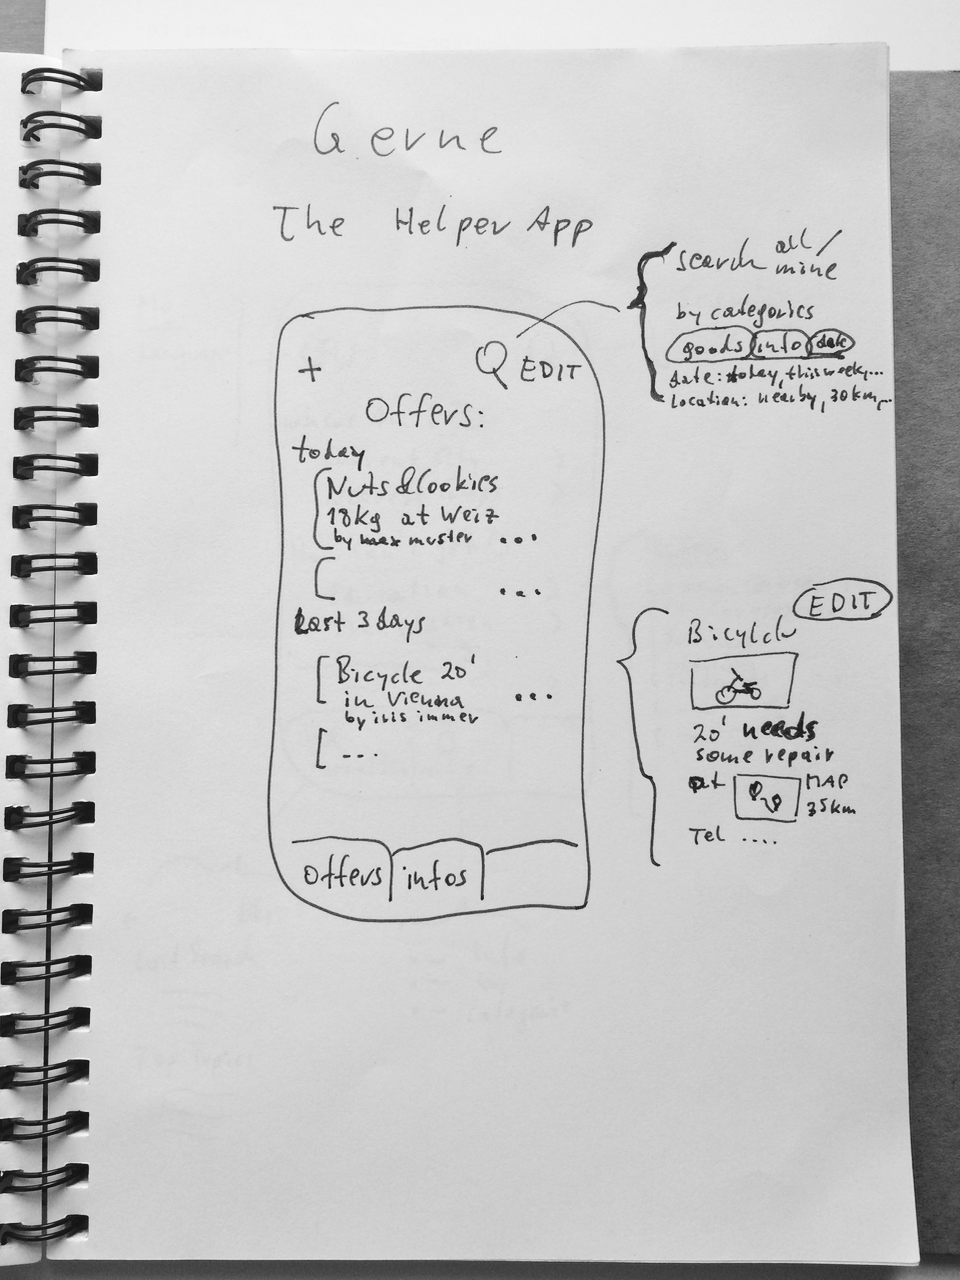 Gerne
The Helper App
+
EDIT
Offers:
today
Nuts & Cookies
18Kg at Weiz
by max muster ...
...
Last 3 days
Bicycle 20'
in Vienna
by iris immer
...
...
offers infos
search all/
mine
by categories
goods info date
date: today, this week,...
Location: nearby, 30km,..
EDIT
Bicylcle
20' needs
some repair
at MAP
35km
Tel ....